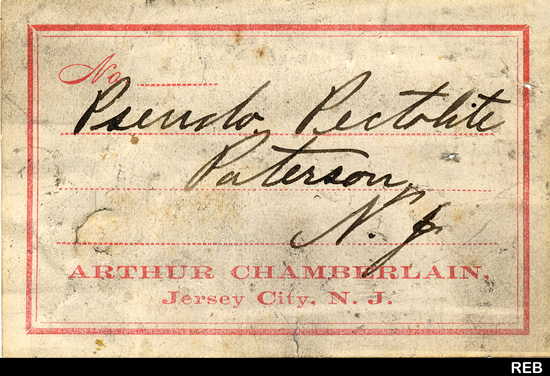 No.
Pseudo Pectolite
Paterson,
N. J.
ARTHUR CHAMBERLAIN,
Jersey City, N. J.
REB